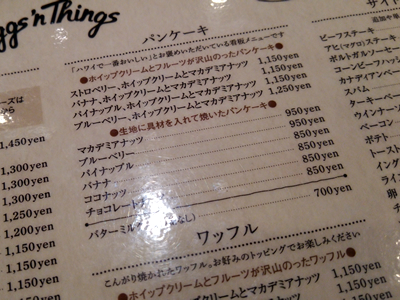 ggs'n Things
パンケーキ
「ハワイで一番おいしい」とお褒めいただいている看板メニューです
●ホイップクリームとフルーツが沢山のったパンケーキ●
ストロベリー、ホイップクリームとマカデミアナッツ 1,150yen
バナナ、ホイップクリームとマカデミアナッツ 1,150yen
パイナップル、ホイップクリームとマカデミアナッツ 1,150yen
ブルーベリー、ホイップクリームとマカデミアナッツ 1,250yen
●生地に具材を入れて焼いたパンケーキ●
マカデミアナッツ 950yen
ブルーベリー 950yen
パイナップル 850yen
バナナ 850yen
ココナッツ 850yen
チョコレート 850yen
バターミル なし) 700yen
ワッフル
こんがり焼かれたワッフル。お好みのトッピングでお楽しみください
●ホイップクリームとフルーツが沢山のったワッフル●
ホイップクリームとマカデミアナッツ 1,150yen
1,150yen
ーズは
から
1,450yen
1,300yen
1,300yen
1,250yen
1,200yen
1,150yen
1,150yen
1,150yen
サイド
追加や単
ビーフステーキ
アヒ(マグロ)ステーキ
ポルトガルソーセー
コーンビーフハッシ
カナディアンベーコ
スパム
ターキーベーコ
ウインナーソ
ベーコン
ポテト
トースト
イング
ライ
卵